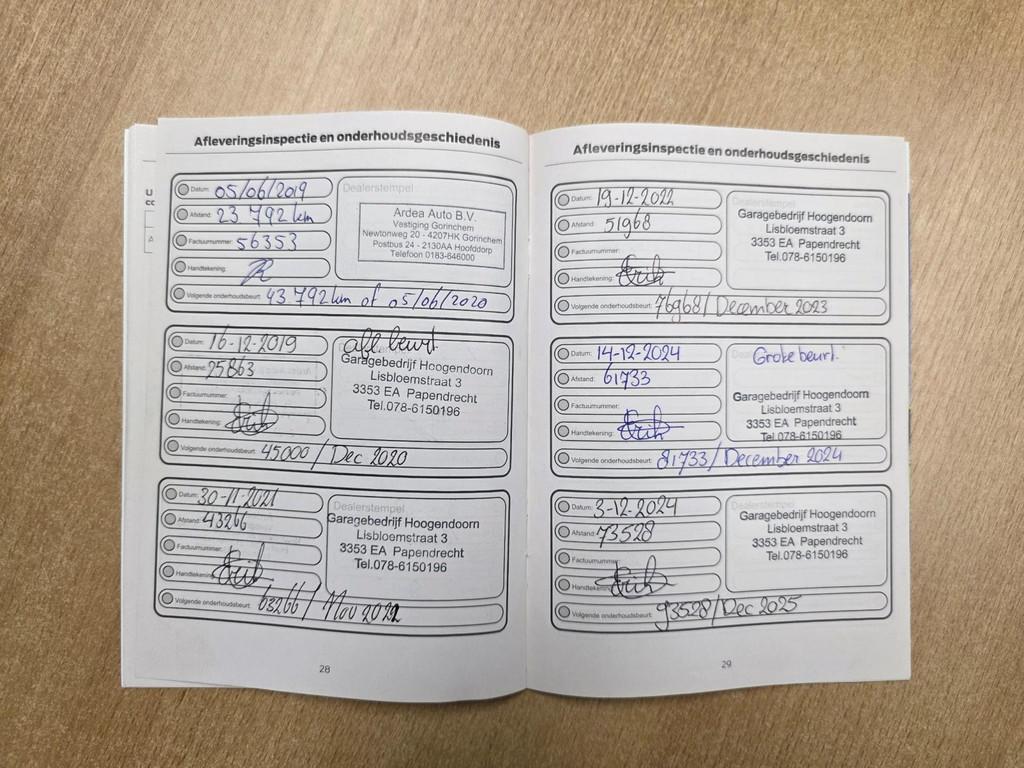 Afleveringsinspectie en onderhoudsgeschiedenis
Datum: 05/06/2019
Afstand: 23 792 km
Factuurnummer: 56353
Handtekening:
Volgende onderhoudsbeurt: 43 792 km of 05/06/2020
Dealerstempel
Ardea Auto B.V.
Vestiging Gorinchem
Newtonweg 20 - 4207HK Gorinchem
Postbus 24 - 2130AA Hoofddorp
Telefoon 0183-646000
Datum: 16-12-2019
Afstand: 25863
Factuurnummer:
Handtekening:
Volgende onderhoudsbeurt: 45000 / Dec 2020
Garagebedrijf Hoogendoorn
Lisbloemstraat 3
3353 EA Papendrecht
Tel.078-6150196
Datum: 30-11-2021
Afstand: 43266
Factuurnummer:
Handtekening:
Volgende onderhoudsbeurt: 63266 / Nov 2022
Dealerstempel
Garagebedrijf Hoogendoorn
Lisbloemstraat 3
3353 EA Papendrecht
Tel.078-6150196
28
Afleveringsinspectie en onderhoudsgeschiedenis
Datum: 19-12-2022
Afstand: 51968
Factuurnummer:
Handtekening:
Volgende onderhoudsbeurt: 76968 / December 2023
Dealerstempel
Garagebedrijf Hoogendoorn
Lisbloemstraat 3
3353 EA Papendrecht
Tel.078-6150196
Datum: 14-12-2024
Afstand: 61733
Factuurnummer:
Handtekening:
Volgende onderhoudsbeurt: 81733 / December 2024
Grote beurt.
Garagebedrijf Hoogendoorn
Lisbloemstraat 3
3353 EA Papendrecht
Tel.078-6150196
Datum: 3-12-2024
Afstand: 73528
Factuurnummer:
Handtekening:
Volgende onderhoudsbeurt: 93528 / Dec 2025
Dealerstempel
Garagebedrijf Hoogendoorn
Lisbloemstraat 3
3353 EA Papendrecht
Tel.078-6150196
29